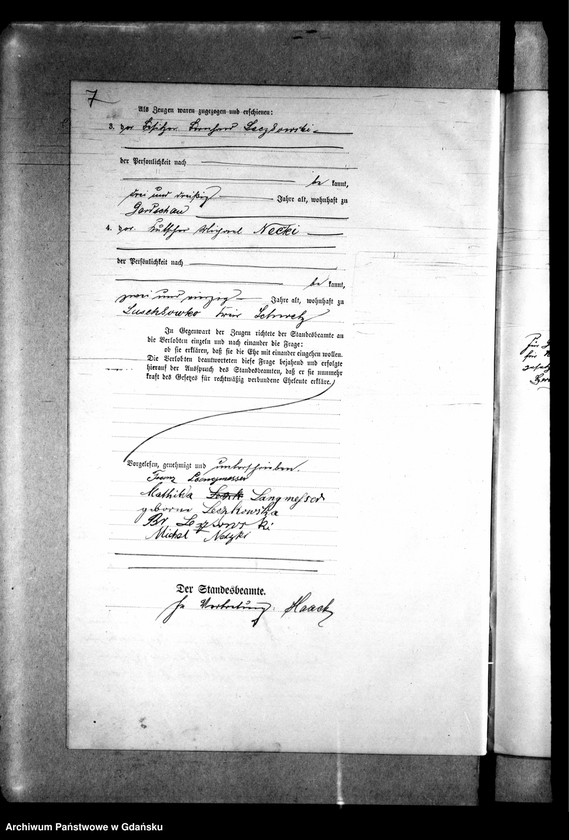 7
Als Zeugen waren zugezogen und erschienen:
3. der Besitzer Bernhard Leczkowski
der Persönlichkeit nach
be kannt,
drei und dreißig Jahre alt, wohnhaft zu
Gardschau
4. der Kutscher Michael Netzki
der Persönlichkeit nach
be kannt,
zwei und Jahre alt, wohnhaft zu
Luschkowko Kreis Schwetz
In Gegenwart der Zeugen richtete der Standesbeamte an
die Verlobten einzeln und nach einander die Frage:
ob sie erklären, daß sie die Ehe mit einander eingehen wollen.
Die Verlobten beantworteten diese Frage bejahend und erfolgte
hierauf der Ausspruch des Standesbeamten, daß er sie nunmehr
kraft des Gesetzes für rechtmäßig verbundene Eheleute erkläre.
Vorgelesen, genehmigt und unterschrieben.
Franz Langmesser
Mathilda Langmesser
geborne Leczkowska
Br Lezkowski
Michal Netzki
Der Standesbeamte.
In Vertretung Haack
Archiwum Państwowe w Gdańsku